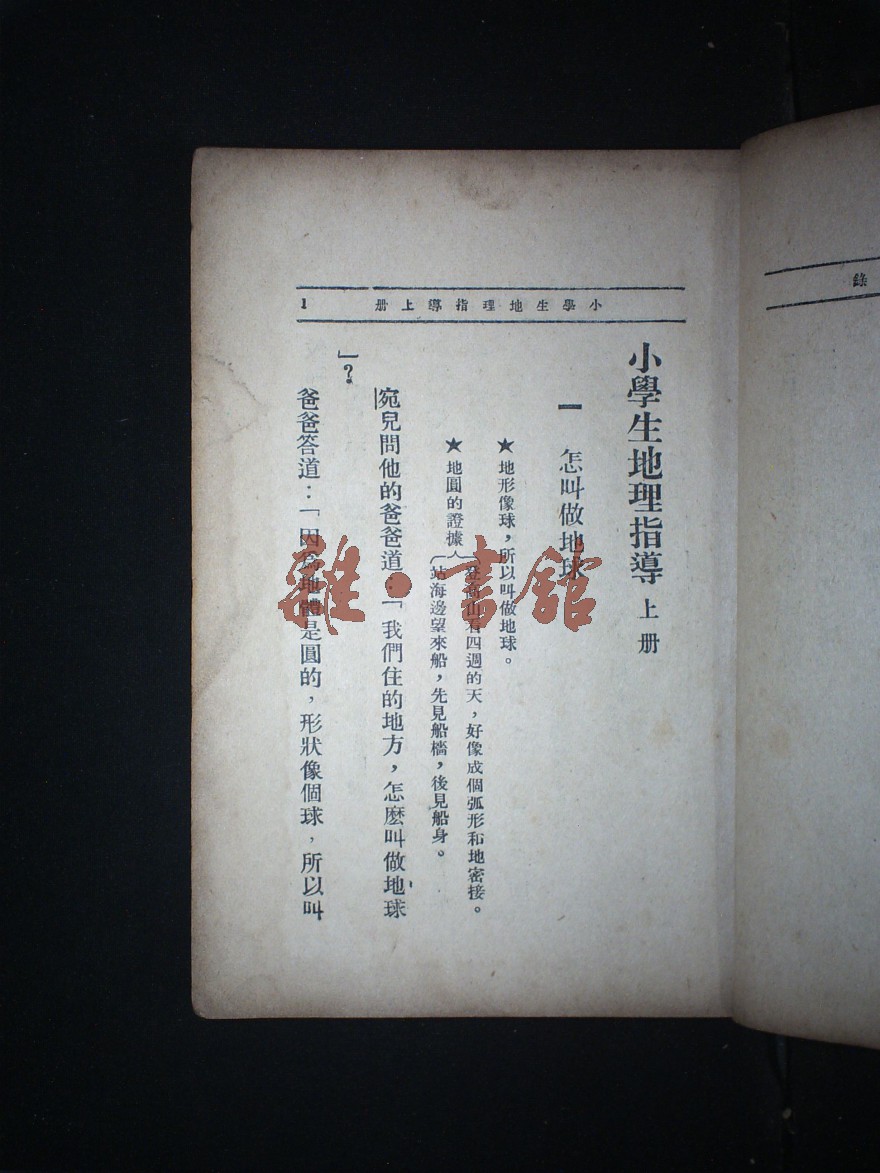 小學生地理指導上册
1
小學生地理指導 上册
一 怎叫做地球
★地形像球，所以叫做地球。
★地圓的證據
登高山看四週的天，好像成個弧形和地密接。
站海邊望來船，先見船檣，後見船身。
宛兒問他的爸爸道：「我們住的地方，怎麽叫做地球
」？
爸爸答道：「因爲地體是圓的，形狀像個球，所以叫
錄
雜·書館